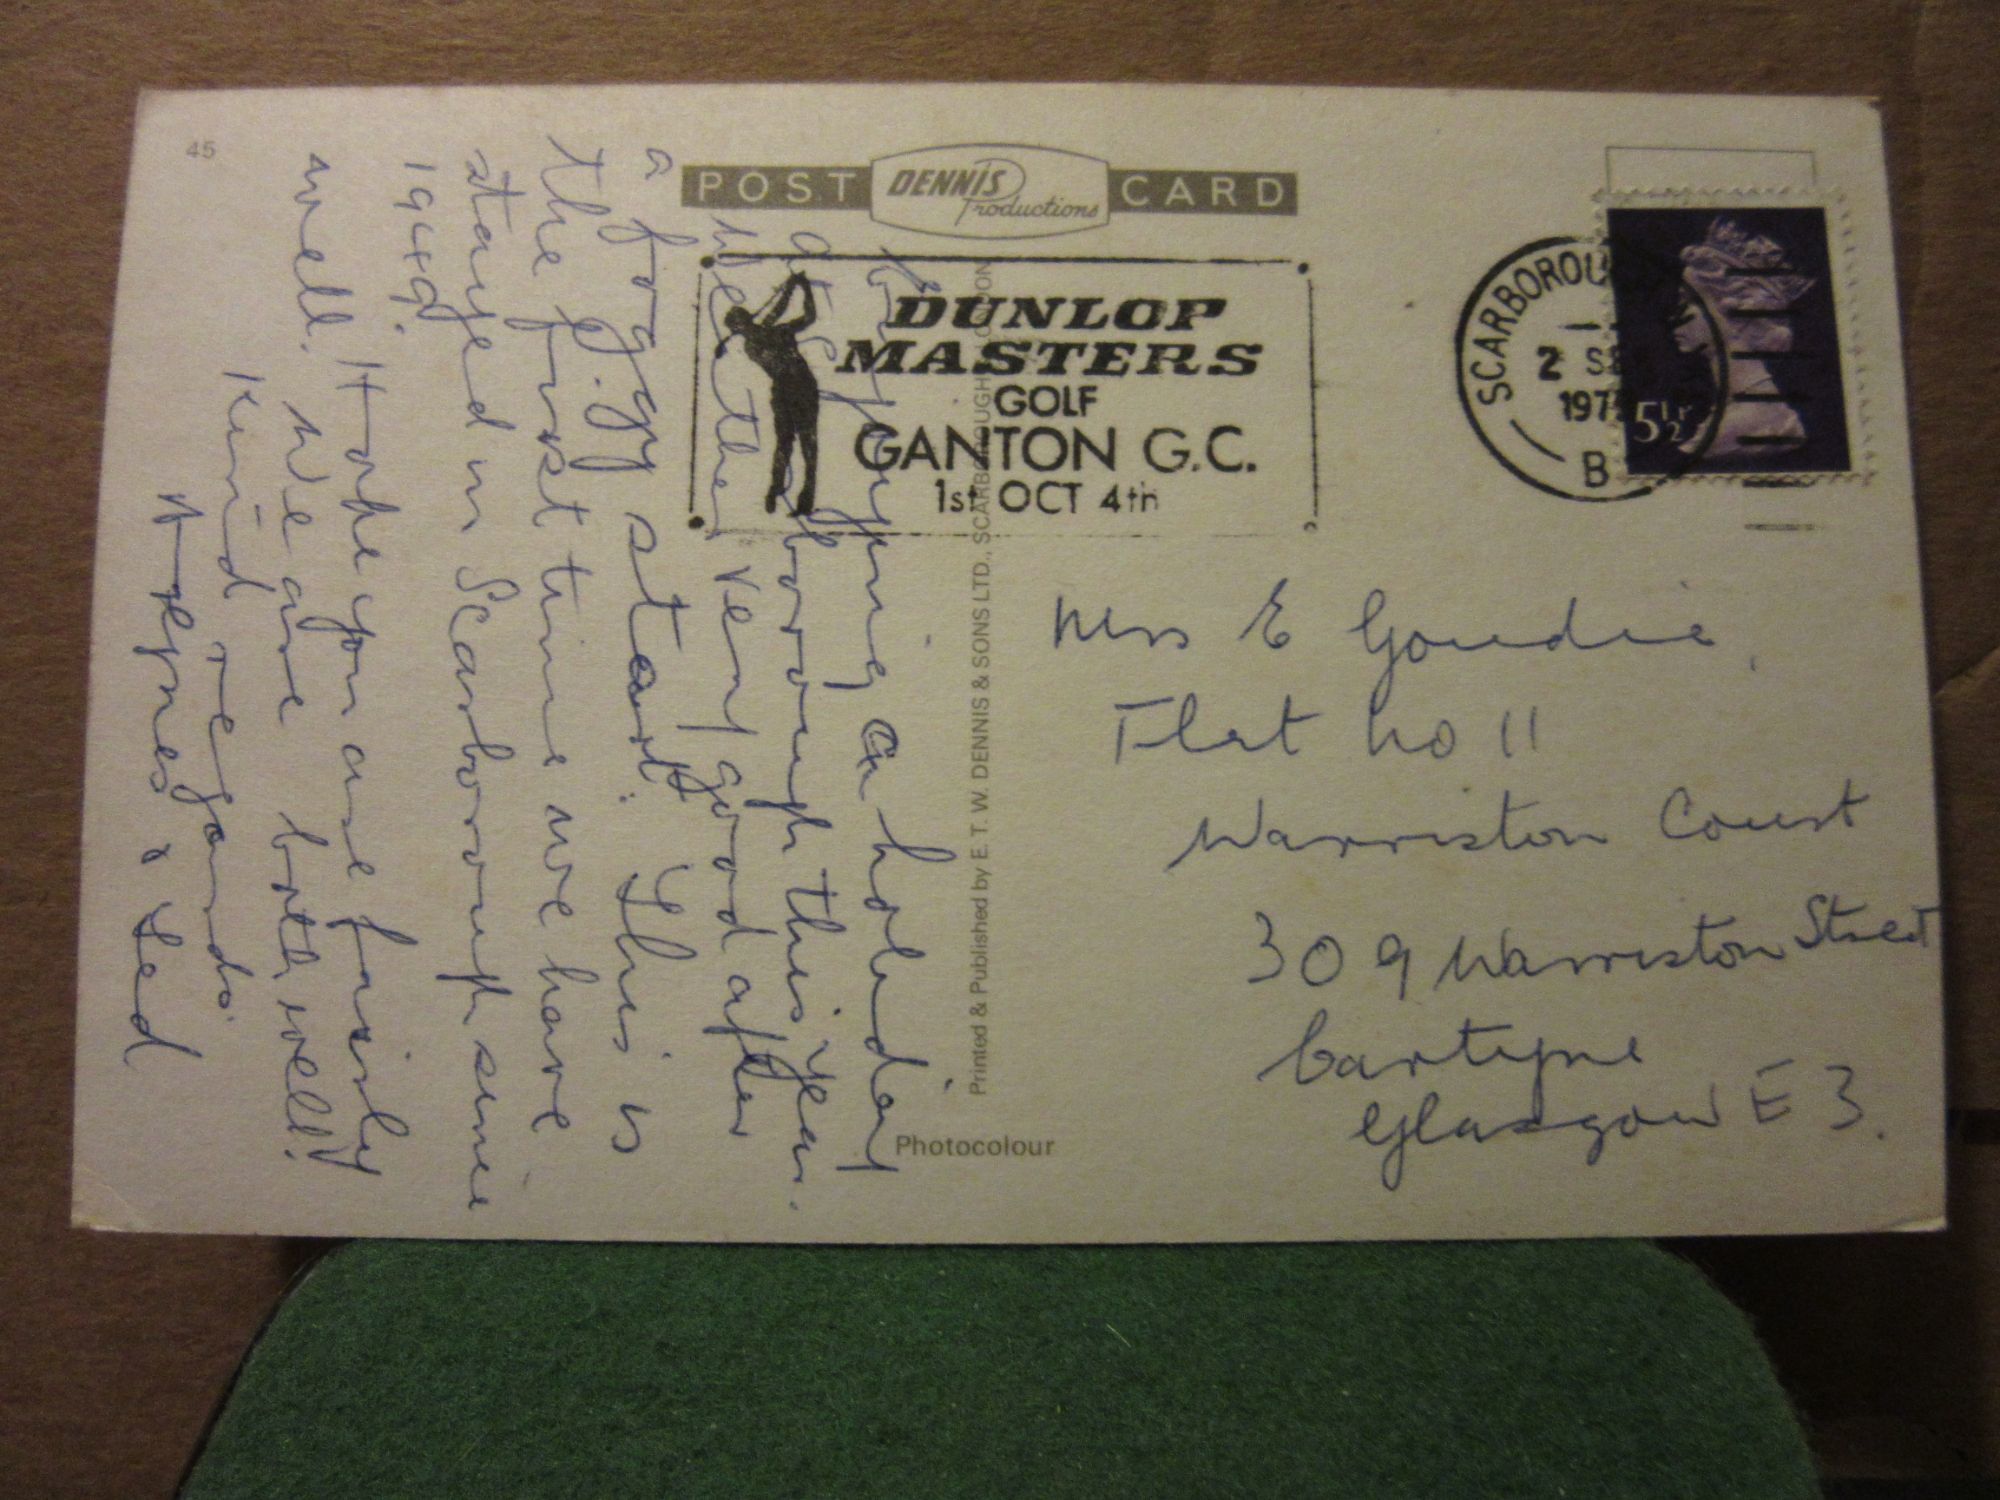 45
POST DENNIS Productions CARD
DUNLOP
MASTERS
GOLF
GANTON G.C.
1st OCT 4th
SCARBOROU
2 SE
197
B
5½P
Enjoying a holiday
at Scarborough this year.
Weather very good after
a foggy start. This is
the first time we have
stayed in Scarborough since
1949.
Hope you are fairly
well. We are both well.
Kind regards
Agnes & Ted
Printed & Published by E. T. W. DENNIS & SONS LTD., SCARBOROUGH LONDON
Photocolour
Miss E Goudie,
Flat No 11
Warriston Court
309 Warriston Street
Cartyne
Glasgow E 3.